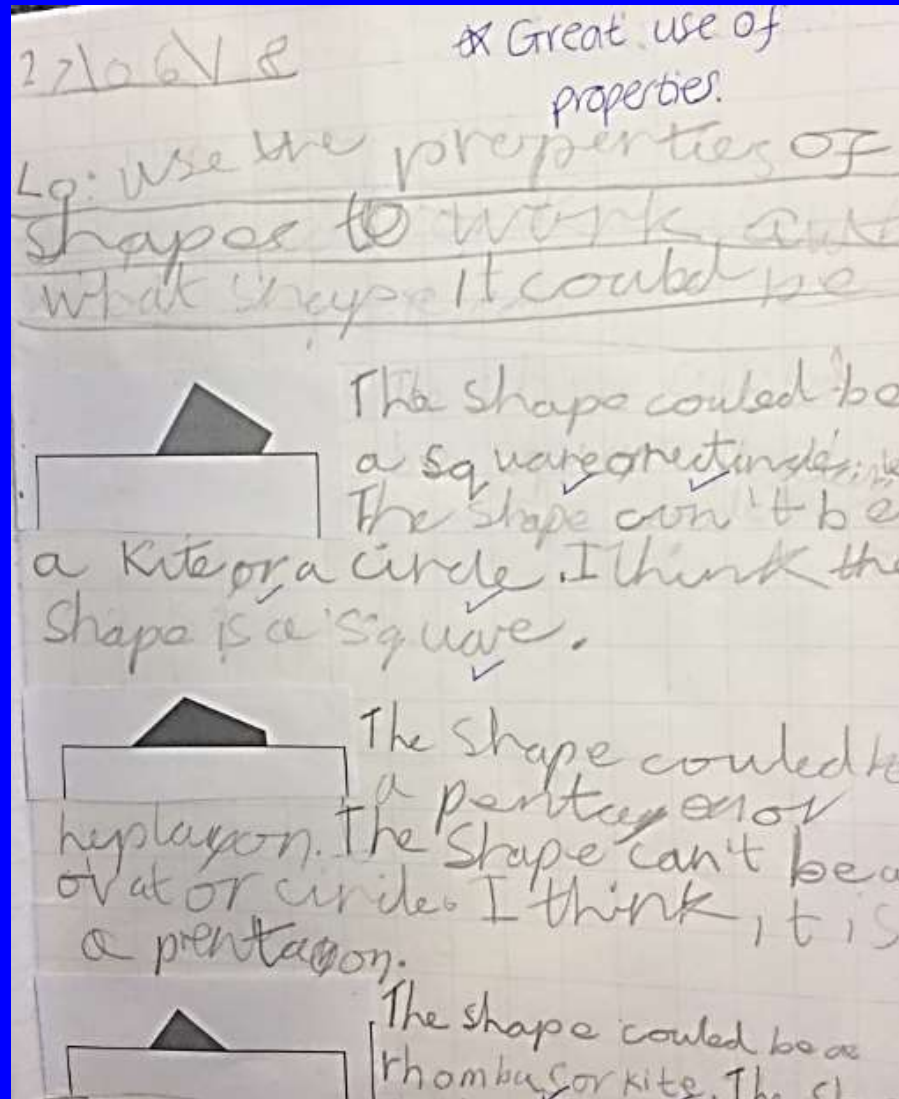 27\06\18
* Great use of
properties.
Lo: use the properties of
shapes to work out
what shape it could be
The shape couled be
a square or
The shape can't be
a kite or a circle. I think the
shape is a square.
The shape couled be
a pentagon or
heptagon. The shape can't be a
oval or circle. I think it is
a pentagon.
The shape couled be a
rhombus or kite. The